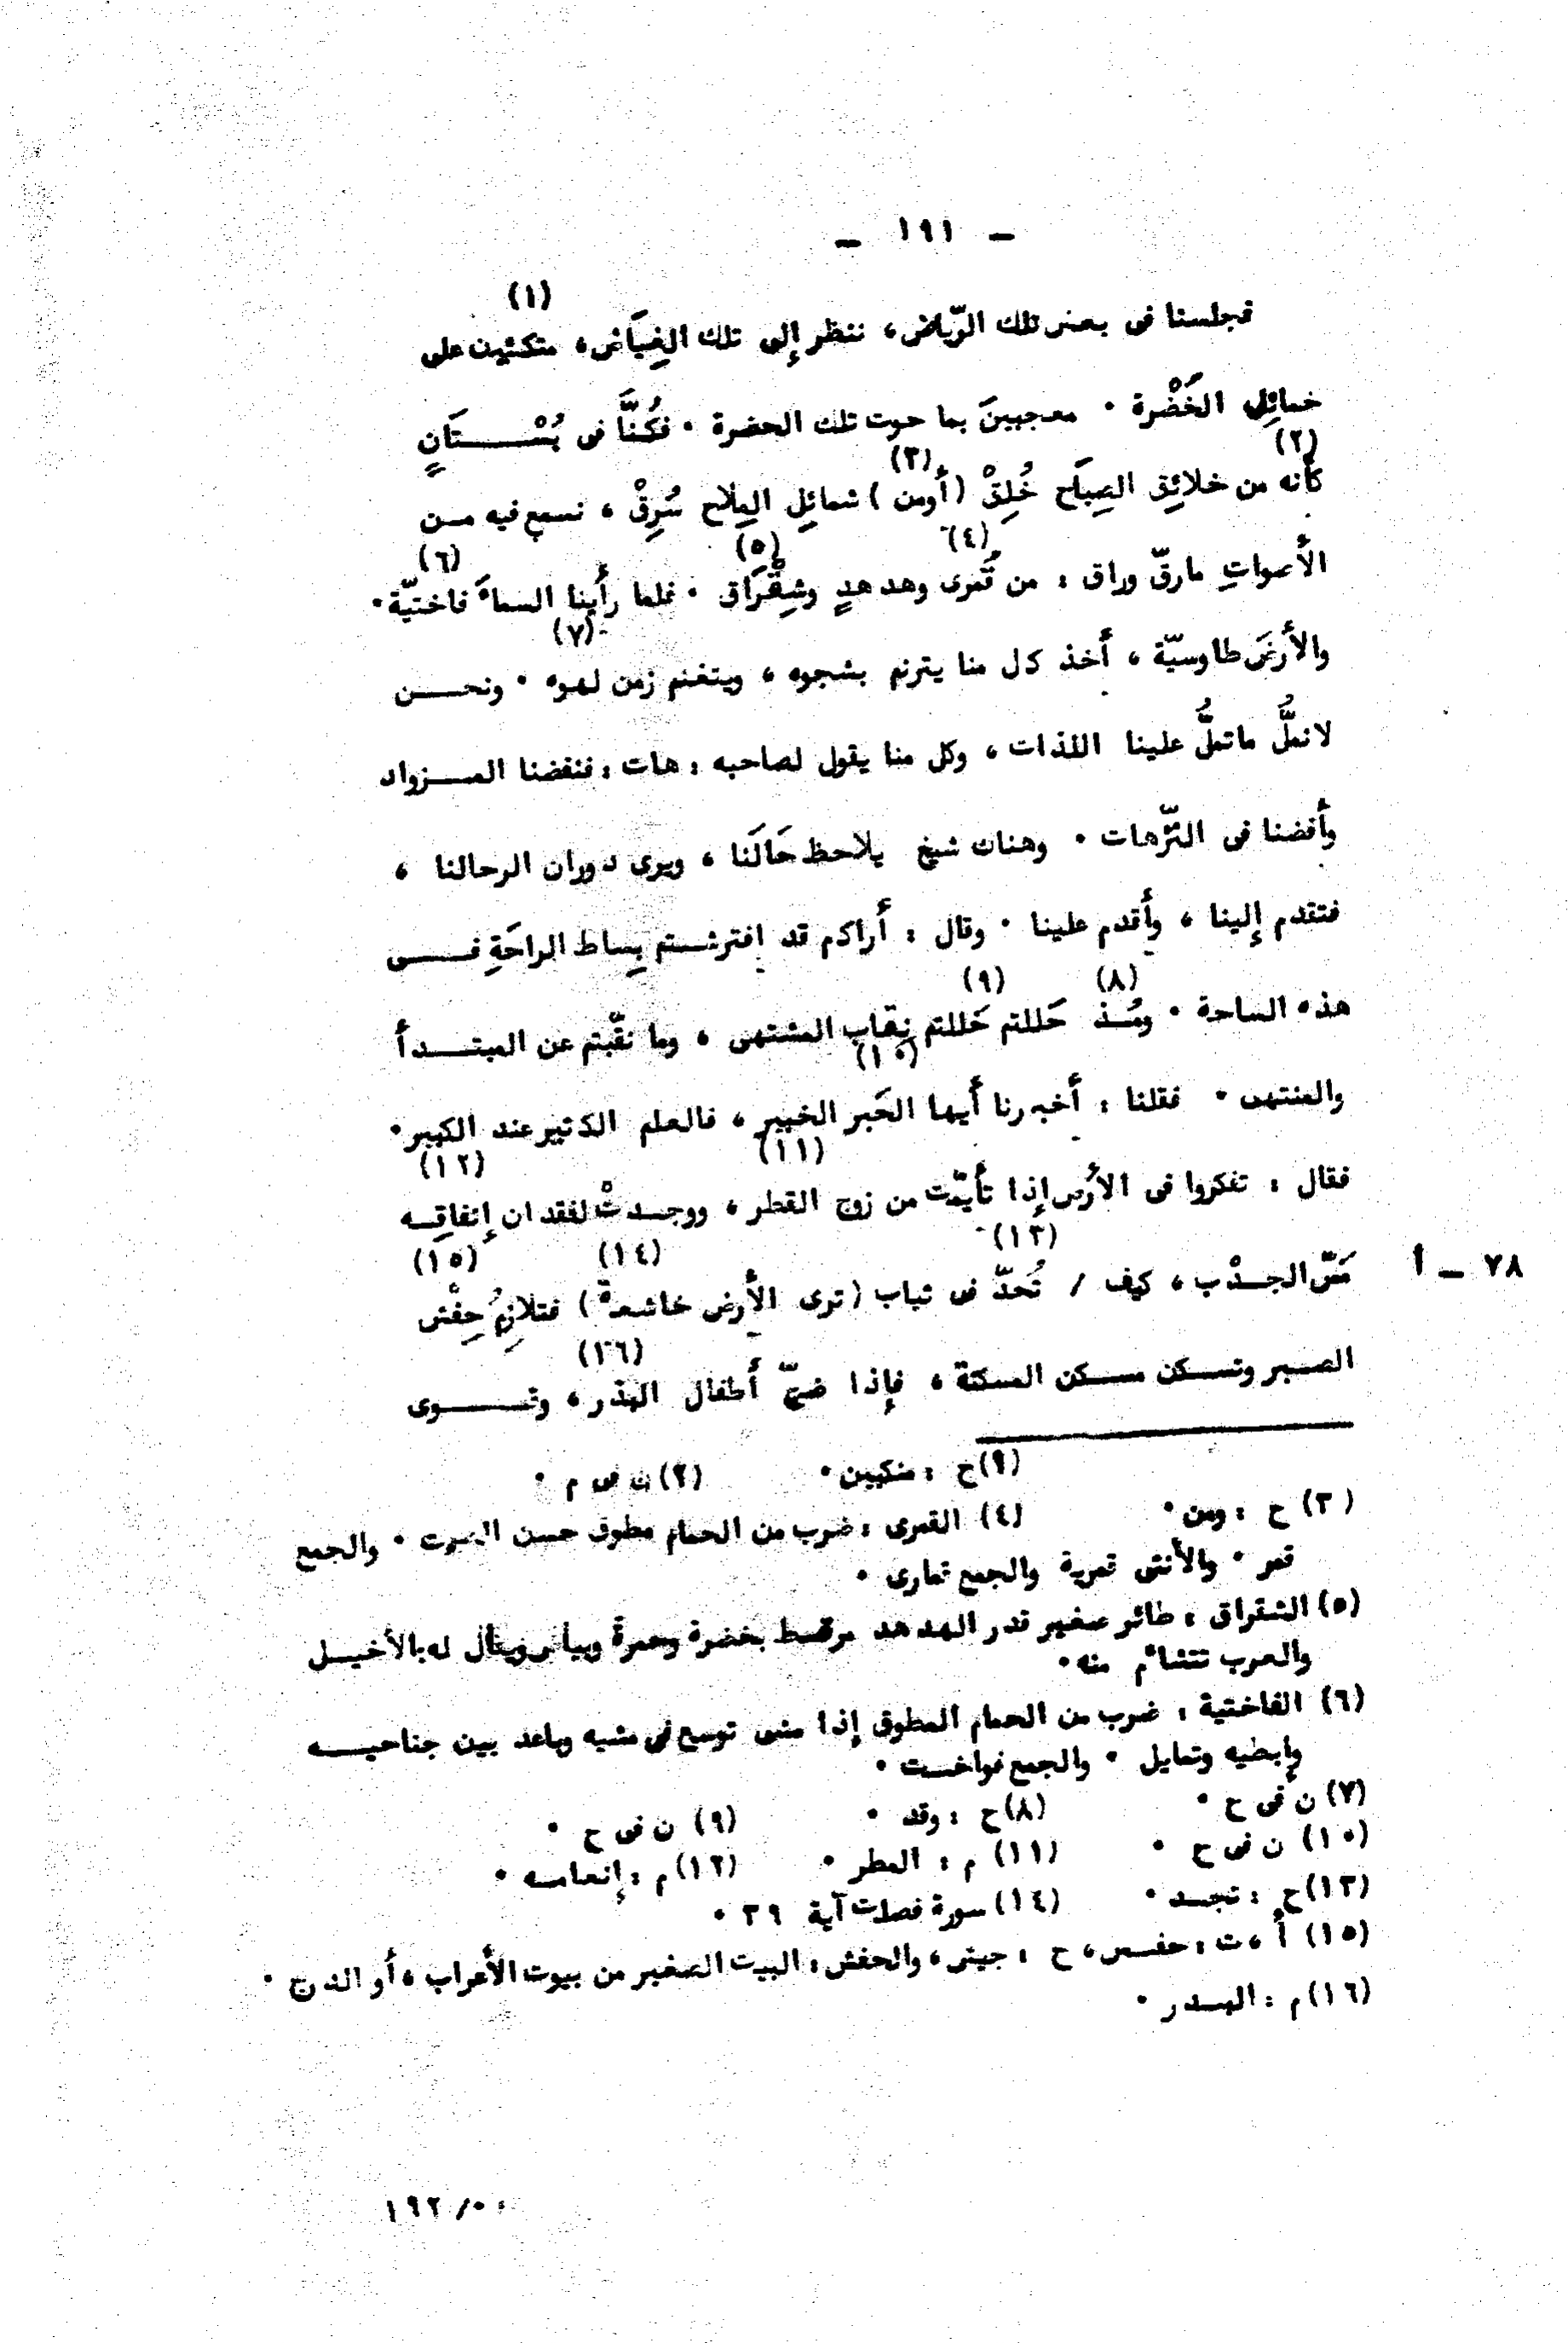 — ١٩١ —
(١)
فجلسنا فى بعض تلك الرّياض، ننظر إلى تلك الغِيَاض، متكئين على
خمائِل الخَضْرة . معجبينَ بما حوت تلك الحضرة . فكُنَّا فى بُسْتَانٍ
(٢) (٣)
كأنه من خلائِق الصِبَاح خُلِقْ (أومن) شمائِل المِلاح سُرِقْ ، نسمع فيه من
(٤) (٥) (٦)
الأصواتِ مارقّ وراق : من قُمرى وهدهدٍ وشِقْرَاق . فلما رأينا السماءَ فاختيّة .
(٧)
والأرضَ طاوسيّة ، أخذ كل منا يترنم بشجوه ، ويتغنم زمن لهوه . ونحن
لانملُّ ماتملُّ علينا اللذات ، وكل منا يقول لصاحبه : هات : فنفضنا المزواد
وأفضنا فى التّرّهات . وهناك شيخ يلاحظ حَالَنا ، ويرى دوران الرحالنا ،
فتقدم إلينا ، وأقدم علينا . وقال : أراكم قد افترشتم بِساط الراحَةِ فى
(٨) (٩)
هذه الساحة . ومُذ حَللتم حَللتم نِقاب المشتهى ، وما نقّبتم عن المبتدأ
(١٠)
والمنتهى . فقلنا : أخبرنا أيها الحَبر الخبير ، فالعلم الكثير عند الكبير .
(١١) (١٢)
فقال : تفكروا فى الأرض إذا تأيّمت من زوج القطر ، ووجدتْ لفقدان إنفاقِه
(١٣) (١٤) (١٥)
٧٨ — أ مَسّ الجدْب ، كيف / تُحدّ فى ثياب (ترى الأرض خاشعةً) فتلازِمُ حِفْش
(١٦)
الصبر وتسكن مسكن المسكنة ، فإذا ضجّ أطفال الهذر ، وتوى
(١) ح : منكبين . (٢) ن فى م .
(٣) ح : ومن . (٤) القمرى : ضرب من الحمام مطوق حسن الصوت . والجمع
قمر . والأنثى قمرية والجمع قمارى .
(٥) الشقراق : طائر صغير قدر الهدهد مرقط بخضرة وحمرة وبياض ويقال له : الأخيل
والعرب تتشاءم منه .
(٦) الفاختية : ضرب من الحمام المطوق إذا مشى توسع فى مشيه وباعد بين جناحيه
وإبطيه وتمايل . والجمع فواخت .
(٧) ن فى ح . (٨) ح : وقد . (٩) ن فى ح .
(١٠) ن فى ح . (١١) م : المطر . (١٢) م : إنعامه .
(١٣) ح : تجد . (١٤) سورة فصلت آية ٣٩ .
(١٥) أ ، ت : حفس ، ح : جيش ، والحفش : البيت الصغير من بيوت الأعراب ، أو الدرج .
(١٦) م : الهدر .
١٩٢/٠٠